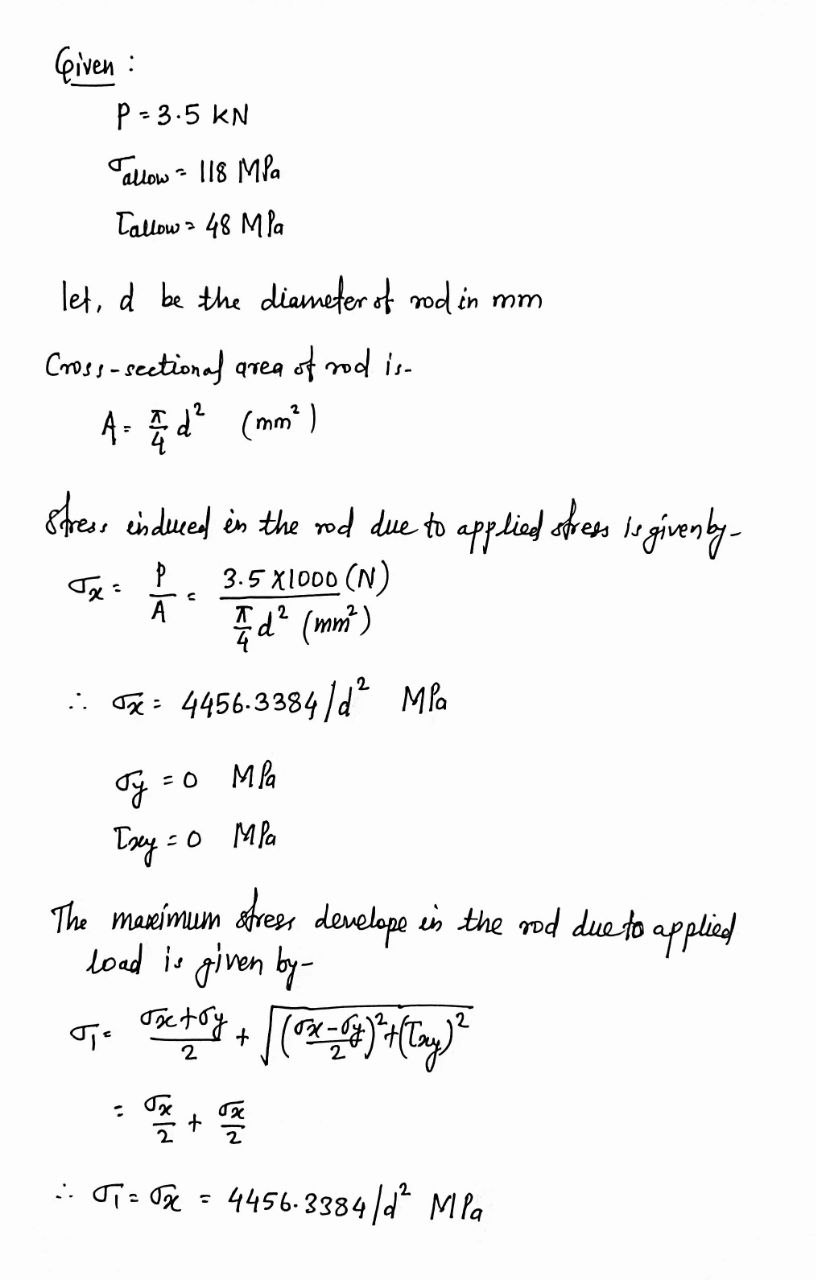 Given :
P = 3.5 kN
σallow = 118 MPa
τallow = 48 MPa
let, d be the diameter of rod in mm
Cross-sectional area of rod is-
A = π/4 d² (mm²)
Stress induced in the rod due to applied stress is given by-
σx = P/A = 3.5 X1000 (N) / π/4 d² (mm²)
∴ σx = 4456.3384/d² MPa
σy = 0 MPa
τxy = 0 MPa
The maximum stress develope in the rod due to applied
load is given by-
σ1 = σx+σy/2 + √(σx-σy/2)²+(τxy)²
= σx/2 + σx/2
∴ σ1 = σx = 4456.3384/d² MPa